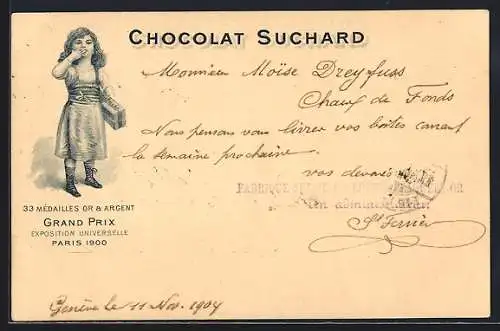 CHOCOLAT SUCHARD
Monsieur Moïse Dreyfuss
Chaux de Fonds
Nous pensons vous livrer vos boîtes courant
la semaine prochaine
vos dévoués
FABRIQUE
Un administrateur:
33 MÉDAILLES OR & ARGENT
GRAND PRIX
EXPOSITION UNIVERSELLE
PARIS 1900
Genève le 11 Nov. 1904